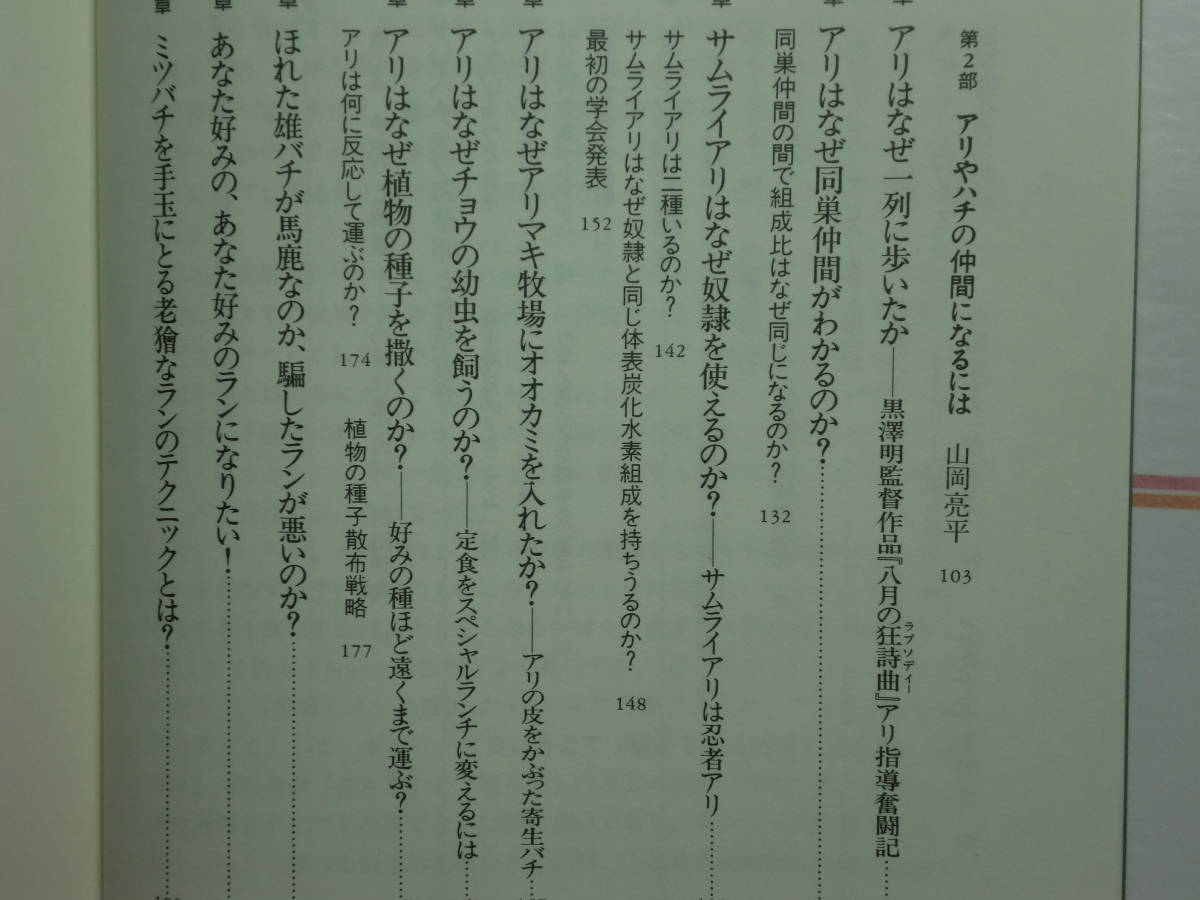 第2部 アリやハチの仲間になるには 山岡亮平 103
章 アリはなぜ一列に歩いたか――黒澤明監督作品『八月の狂詩曲』アリ指導奮闘記……
ラプソディー
章 アリはなぜ同巣仲間がわかるのか？……
同巣仲間の間で組成比はなぜ同じになるのか？ 132
章 サムライアリはなぜ奴隷を使えるのか？――サムライアリは忍者アリ……
サムライアリは二種いるのか？ 142
サムライアリはなぜ奴隷と同じ体表炭化水素組成を持ちうるのか？ 148
最初の学会発表 152
章 アリはなぜアリマキ牧場にオオカミを入れたか？――アリの皮をかぶった寄生バチ……
章 アリはなぜチョウの幼虫を飼うのか？――定食をスペシャルランチに変えるには……
章 アリはなぜ植物の種子を撒くのか？――好みの種ほど遠くまで運ぶ？……
アリは何に反応して運ぶのか？ 174 植物の種子散布戦略 177
章 ほれた雄バチが馬鹿なのか、騙したランが悪いのか？……
章 あなた好みの、あなた好みのランになりたい！……
章 ミツバチを手玉にとる老獪なランのテクニックとは？……